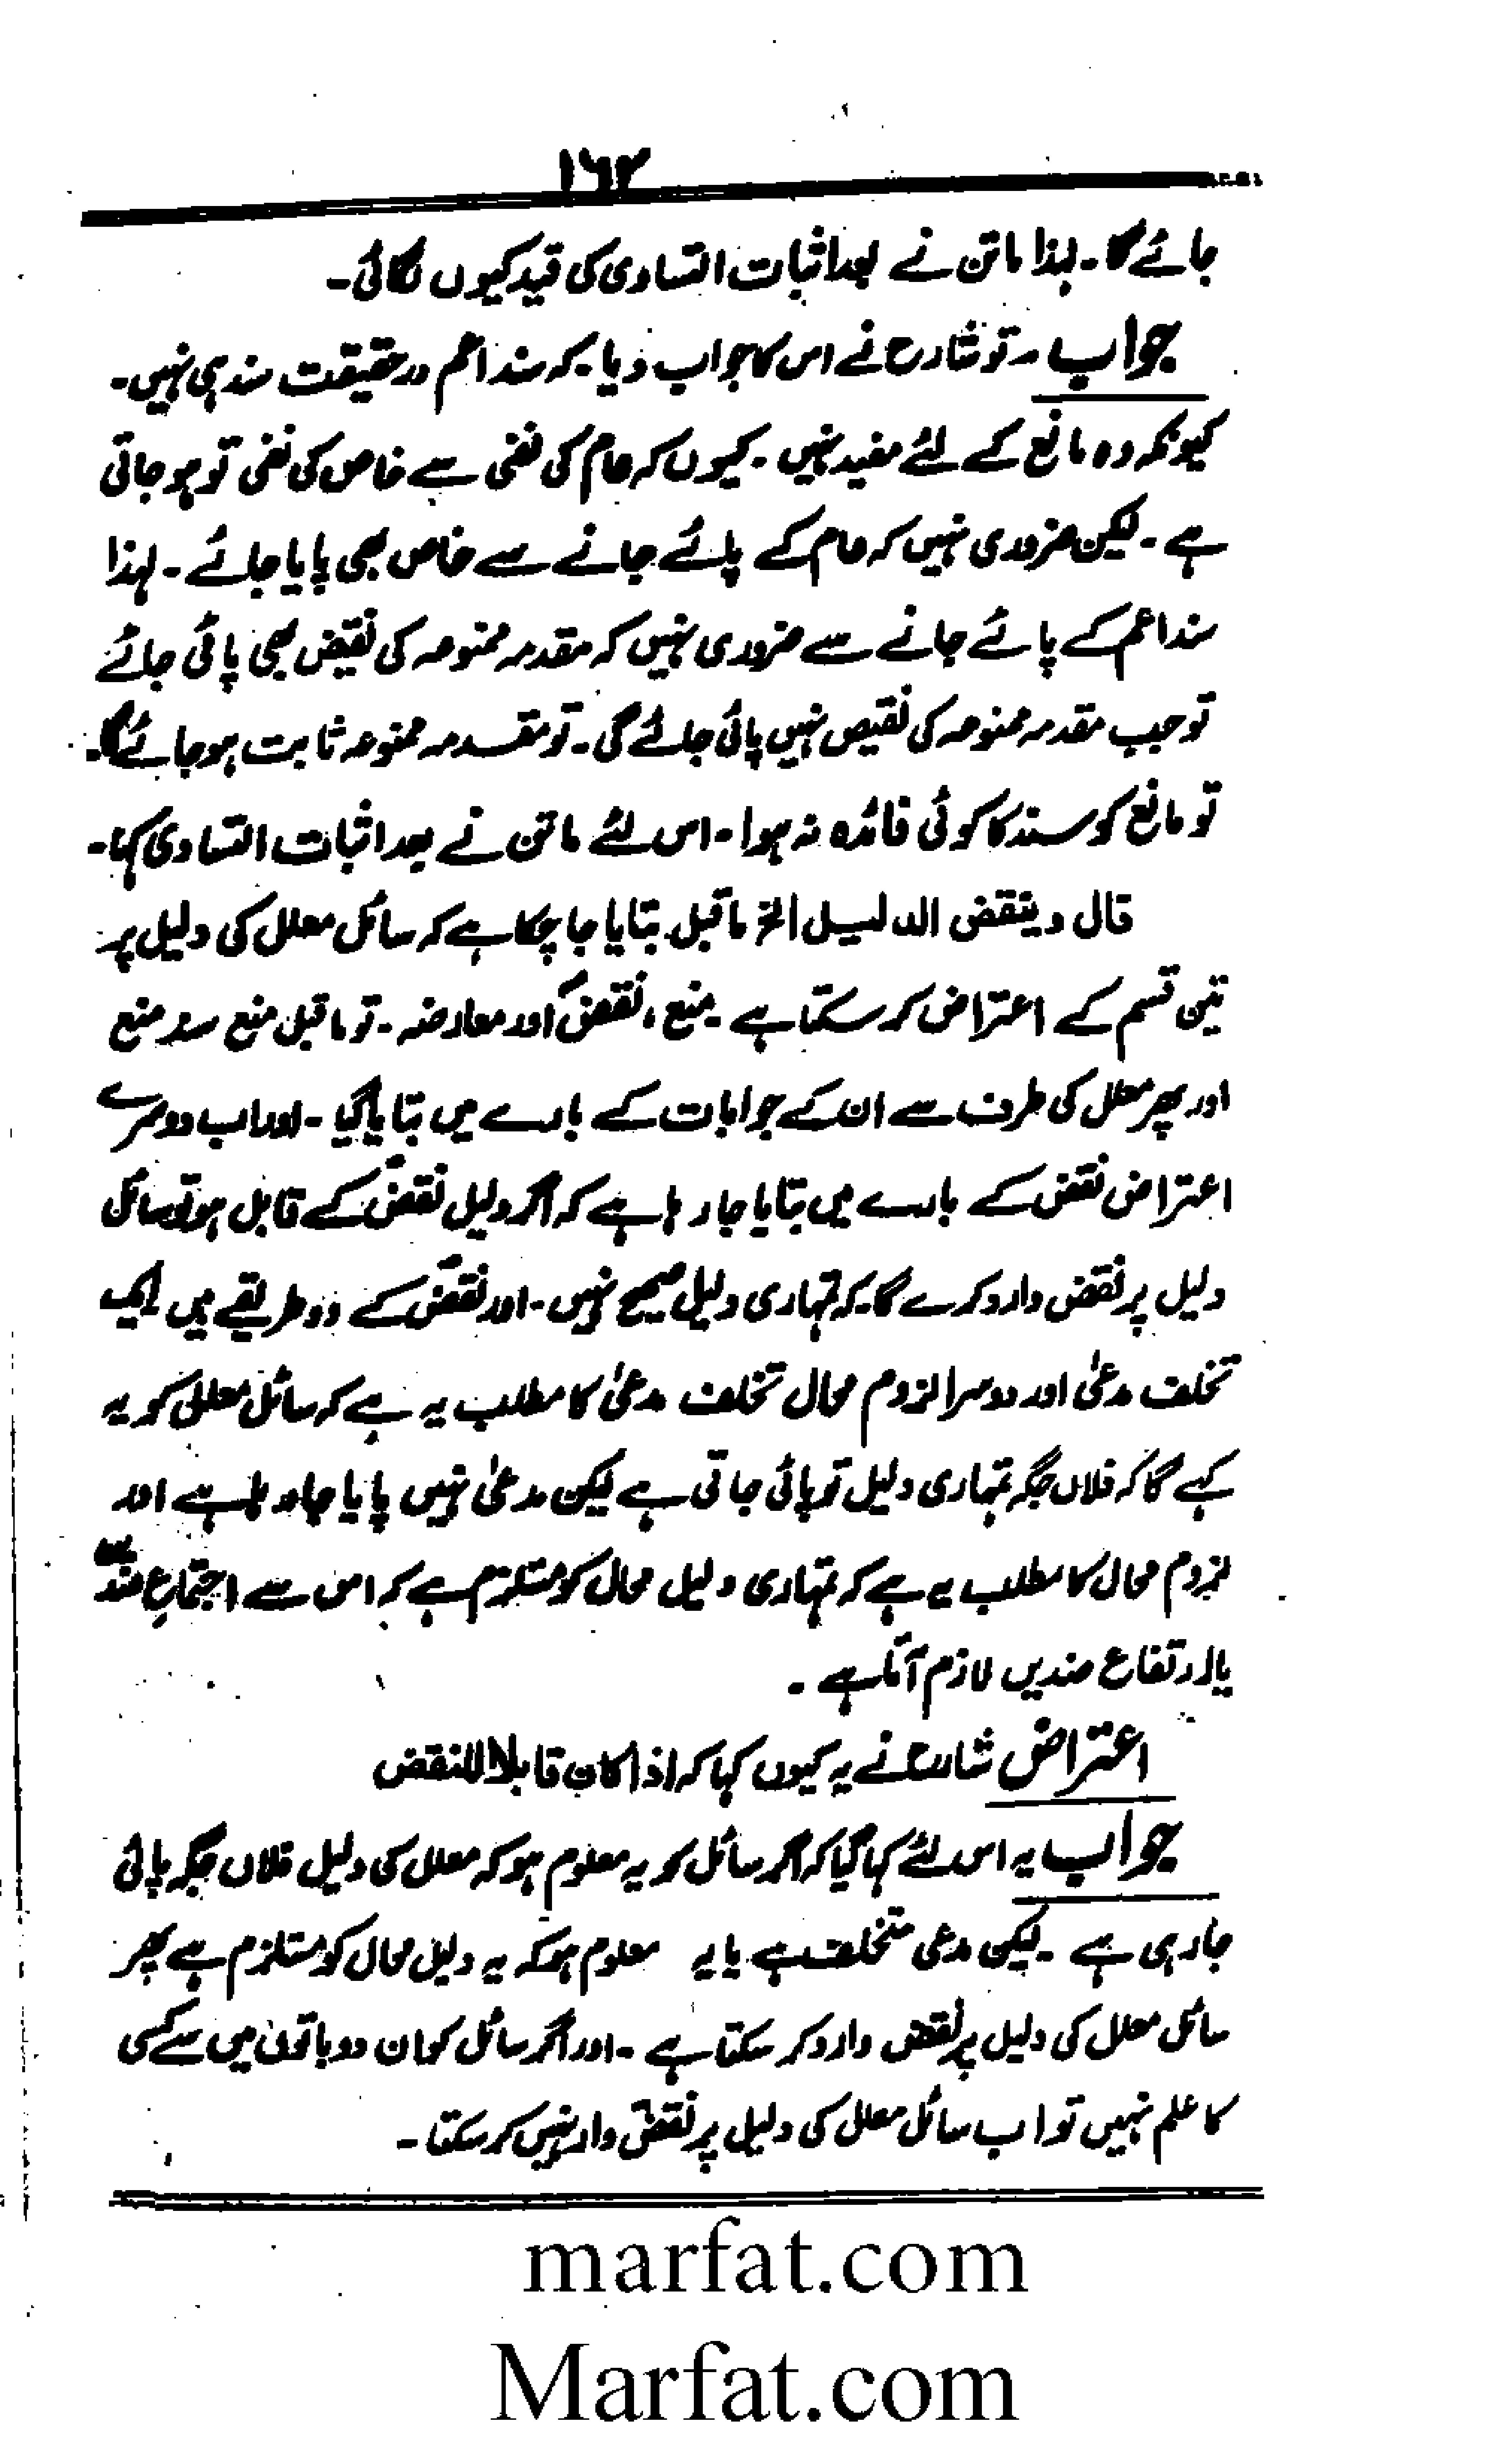 ۱۶۳
جائے گا۔ لہذا ماتن نے بعد اثبات التساوی کی قید کیوں لگائی۔
جواب۔ تو شارح نے اس کا جواب دیا۔ کہ سند اعم درحقیقت سند ہی نہیں۔
کیونکہ وہ مانع کے لئے مفید نہیں۔ کیوں کہ عام کی نفی سے خاص کی نفی تو ہو جاتی
ہے۔ لیکن ضروری نہیں کہ عام کے پائے جانے سے خاص بھی پایا جائے۔ لہذا
سند اعم کے پائے جانے سے ضروری نہیں کہ مقدمہ ممنوعہ کی نقیض بھی پائی جائے
تو جب مقدمہ ممنوعہ کی نقیض نہیں پائی جائے گی۔ تو مقدمہ ممنوعہ ثابت ہو جائے گا۔
تو مانع کو سند کا کوئی فائدہ نہ ہوا۔ اس لئے ماتن نے بعد اثبات التساوی کہا۔
قال و ینقض الدلیل الخ ماقبل بتایا جا چکا ہے کہ سائل معلل کی دلیل پر
تین قسم کے اعتراض کر سکتا ہے۔ منع، نقض اور معارضہ۔ تو ماقبل منع سند منع
اور پھر معلل کی طرف سے ان کے جوابات کے بارے میں بتایا گیا۔ اور اب دوسرے
اعتراض نقض کے بارے میں بتایا جا رہا ہے کہ اگر دلیل نقض کے قابل ہو تو سائل
دلیل پر نقض وارد کرے گا۔ کہ تمہاری دلیل صحیح نہیں۔ اور نقض کے دو طریقے ہیں ایک
تخلف مدعیٰ اور دوسرا لزوم محال تخلف مدعیٰ کا مطلب یہ ہے کہ سائل معلل کو یہ
کہے گا کہ فلاں جگہ تمہاری دلیل تو پائی جاتی ہے لیکن مدعیٰ نہیں پایا جا رہا ہے اور
لزوم محال کا مطلب یہ ہے کہ تمہاری دلیل محال کو مستلزم ہے کہ اس سے اجتماعِ ضدین
یا ارتفاع ضدیں لازم آتا ہے۔
اعتراض شارح نے یہ کیوں کہا کہ اذا کان قابلا للنقض
جواب یہ اس لئے کہا گیا کہ اگر سائل کو یہ معلوم ہو کہ معلل کی دلیل فلاں جگہ پائی
جا رہی ہے۔ لیکن مدعی متخلف ہے یا یہ معلوم ہو کہ یہ دلیل محال کو مستلزم ہے پھر
سائل معلل کی دلیل پر نقض وارد کر سکتا ہے۔ اور اگر سائل کو ان دو باتوں میں سے کسی
کا علم نہیں تو اب سائل معلل کی دلیل پر نقض وارد نہیں کر سکتا۔
marfat.com
Marfat.com